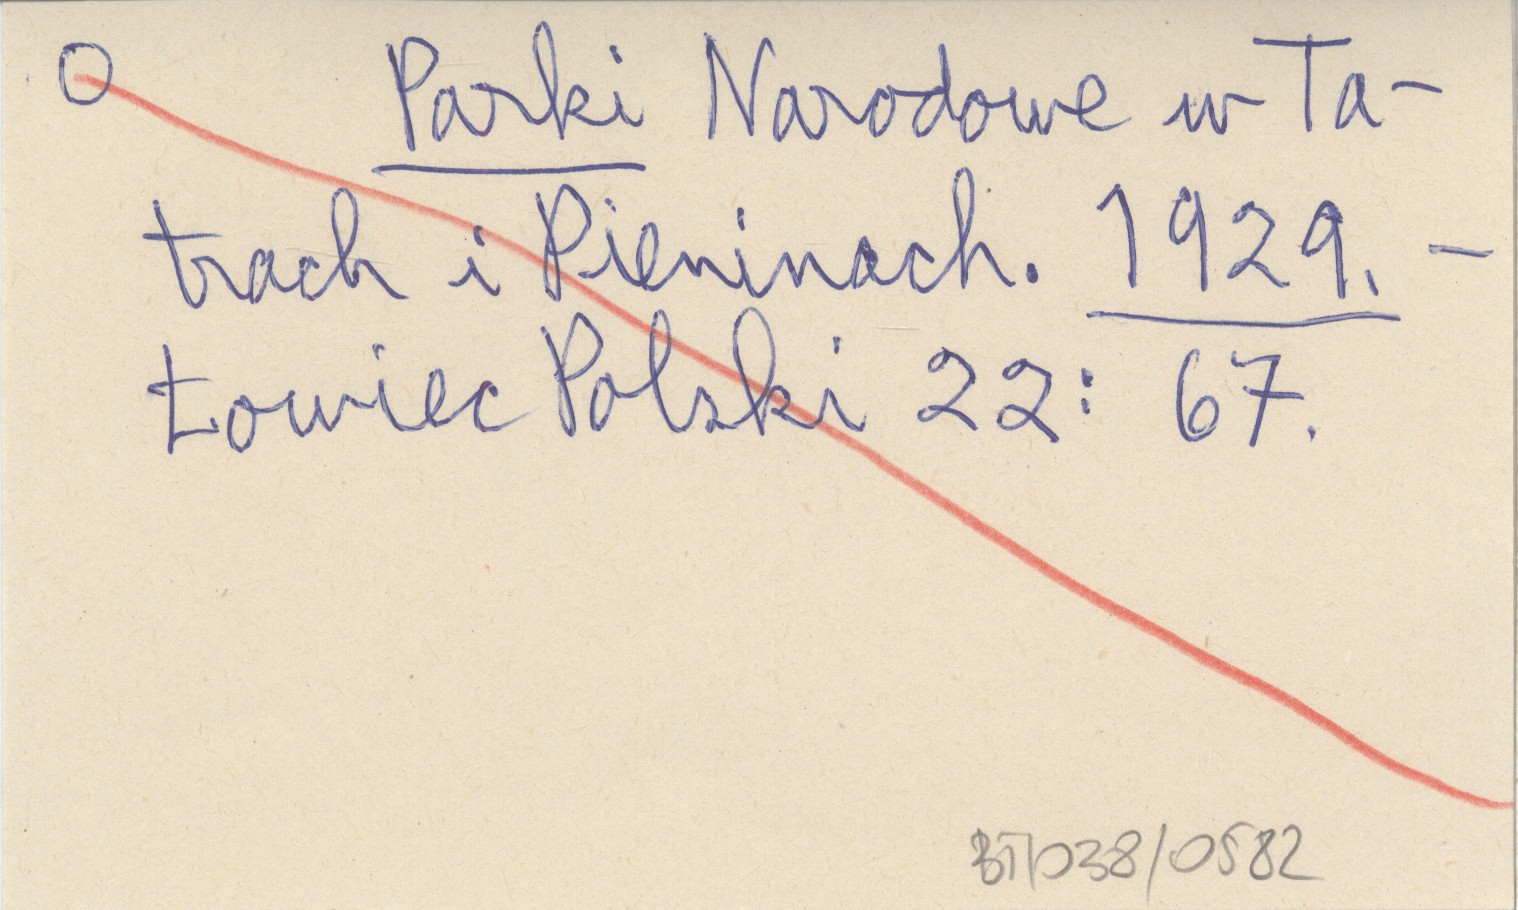 O Parki Narodowe w Ta-
trach i Pieninach. 1929. -
Łowiec Polski 22: 67.
BT/038/0582